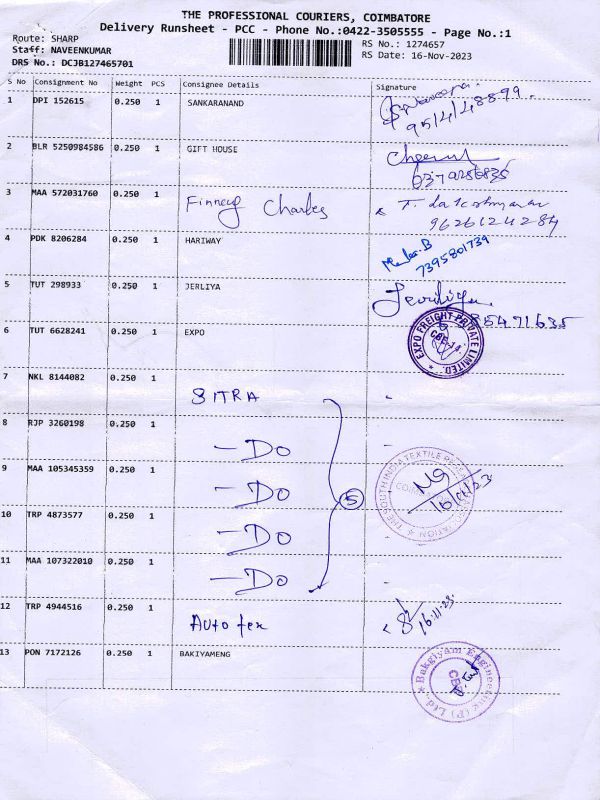 THE PROFESSIONAL COURIERS, COIMBATORE
Delivery Runsheet - PCC - Phone No.:0422-3505555 - Page No.:1
Route: SHARP
RS No.: 1274657
Staff: NAVEENKUMAR
RS Date: 16-Nov-2023
DRS No.: DCJB127465701
S No Consignment No Weight PCS Consignee Details Signature
1 DPI 152615 0.250 1 SANKARANAND
95/4/48899.
2 BLR 5250984586 0.250 1 GIFT HOUSE
3 MAA 572031760 0.250 1 Finney Charles
9626124284
4 PDK 8206284 0.250 1 HARIWAY
7395801739
5 TUT 298933 0.250 1 JERLIYA
85471635
6 TUT 6628241 0.250 1 EXPO
EXPO FREIGHT PRIVATE LIMITED. CBE-14.
7 NKL 8144082 0.250 1 SITRA
8 RJP 3260198 0.250 1 - Do
9 MAA 105345359 0.250 1 - Do
5
THE SOUTH INDIA TEXTILE RESEARCH ASSOCIATION
10 TRP 4873577 0.250 1 - Do
11 MAA 107322010 0.250 1 - Do
12 TRP 4944516 0.250 1 Auto tex
16.11.23.
13 PON 7172126 0.250 1 BAKIYAMENG
Bakgiyam Engineering (P) Ltd. CBE